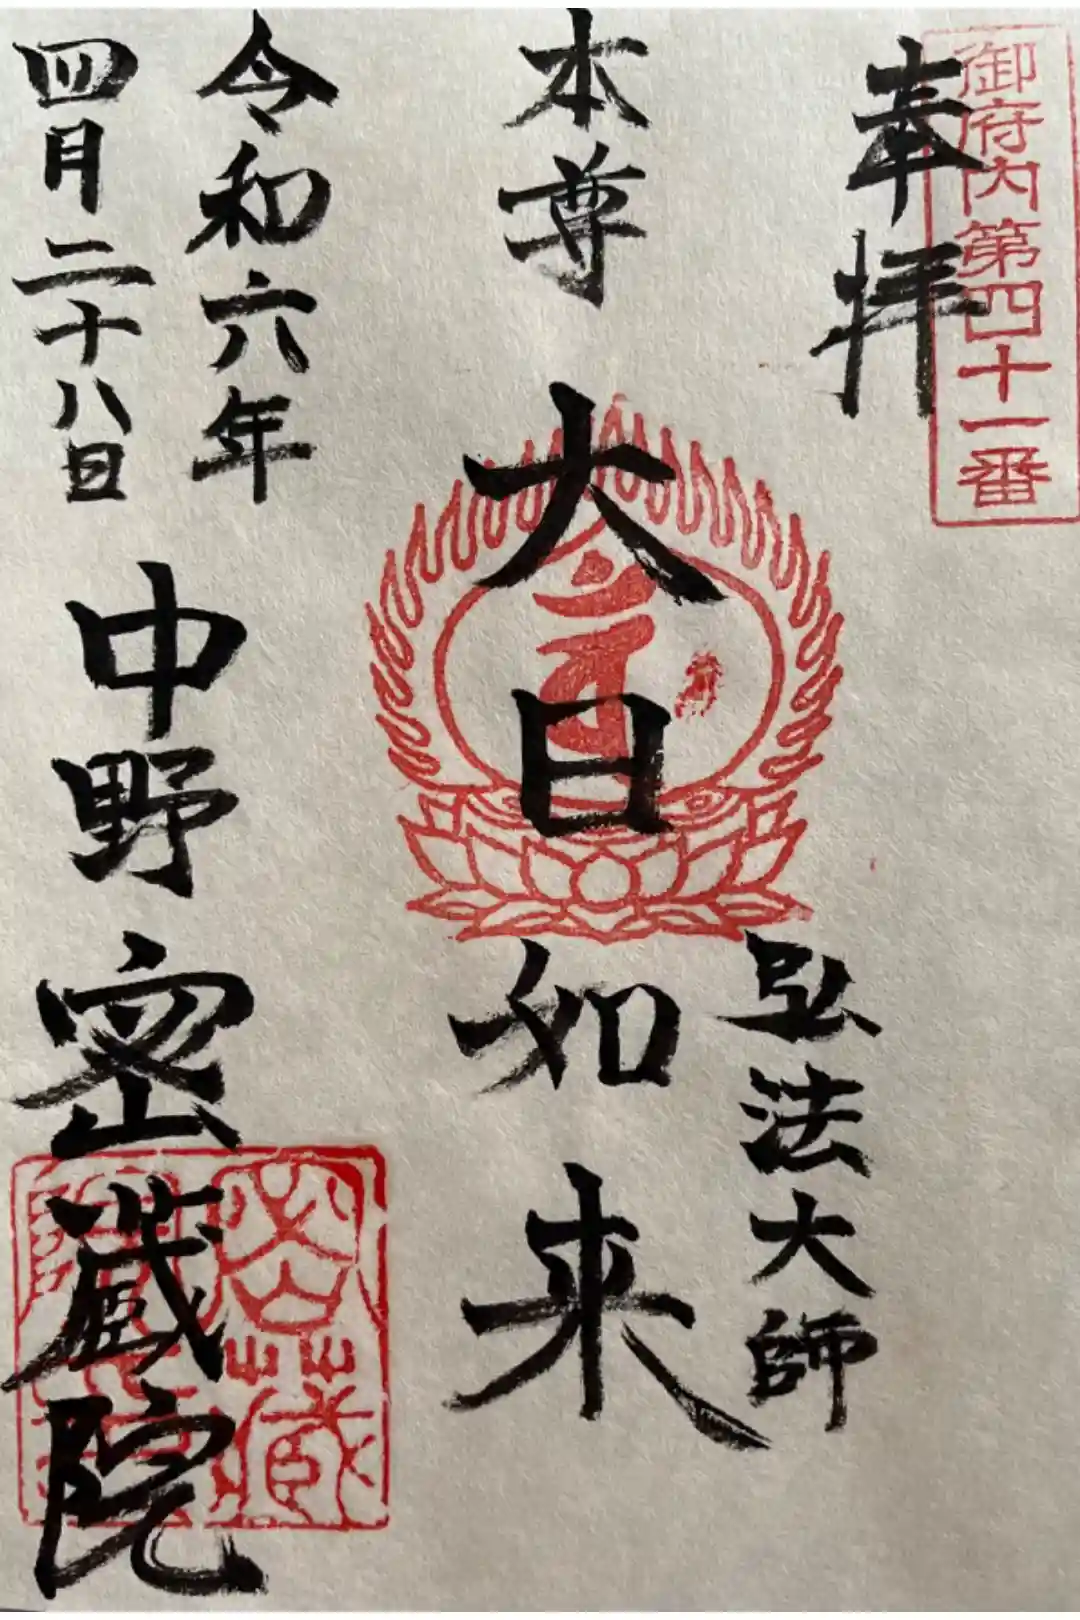 御府内第四十一番
奉拝
弘法大師
本尊 大日如来
令和六年
四月二十八日
中野 密蔵院